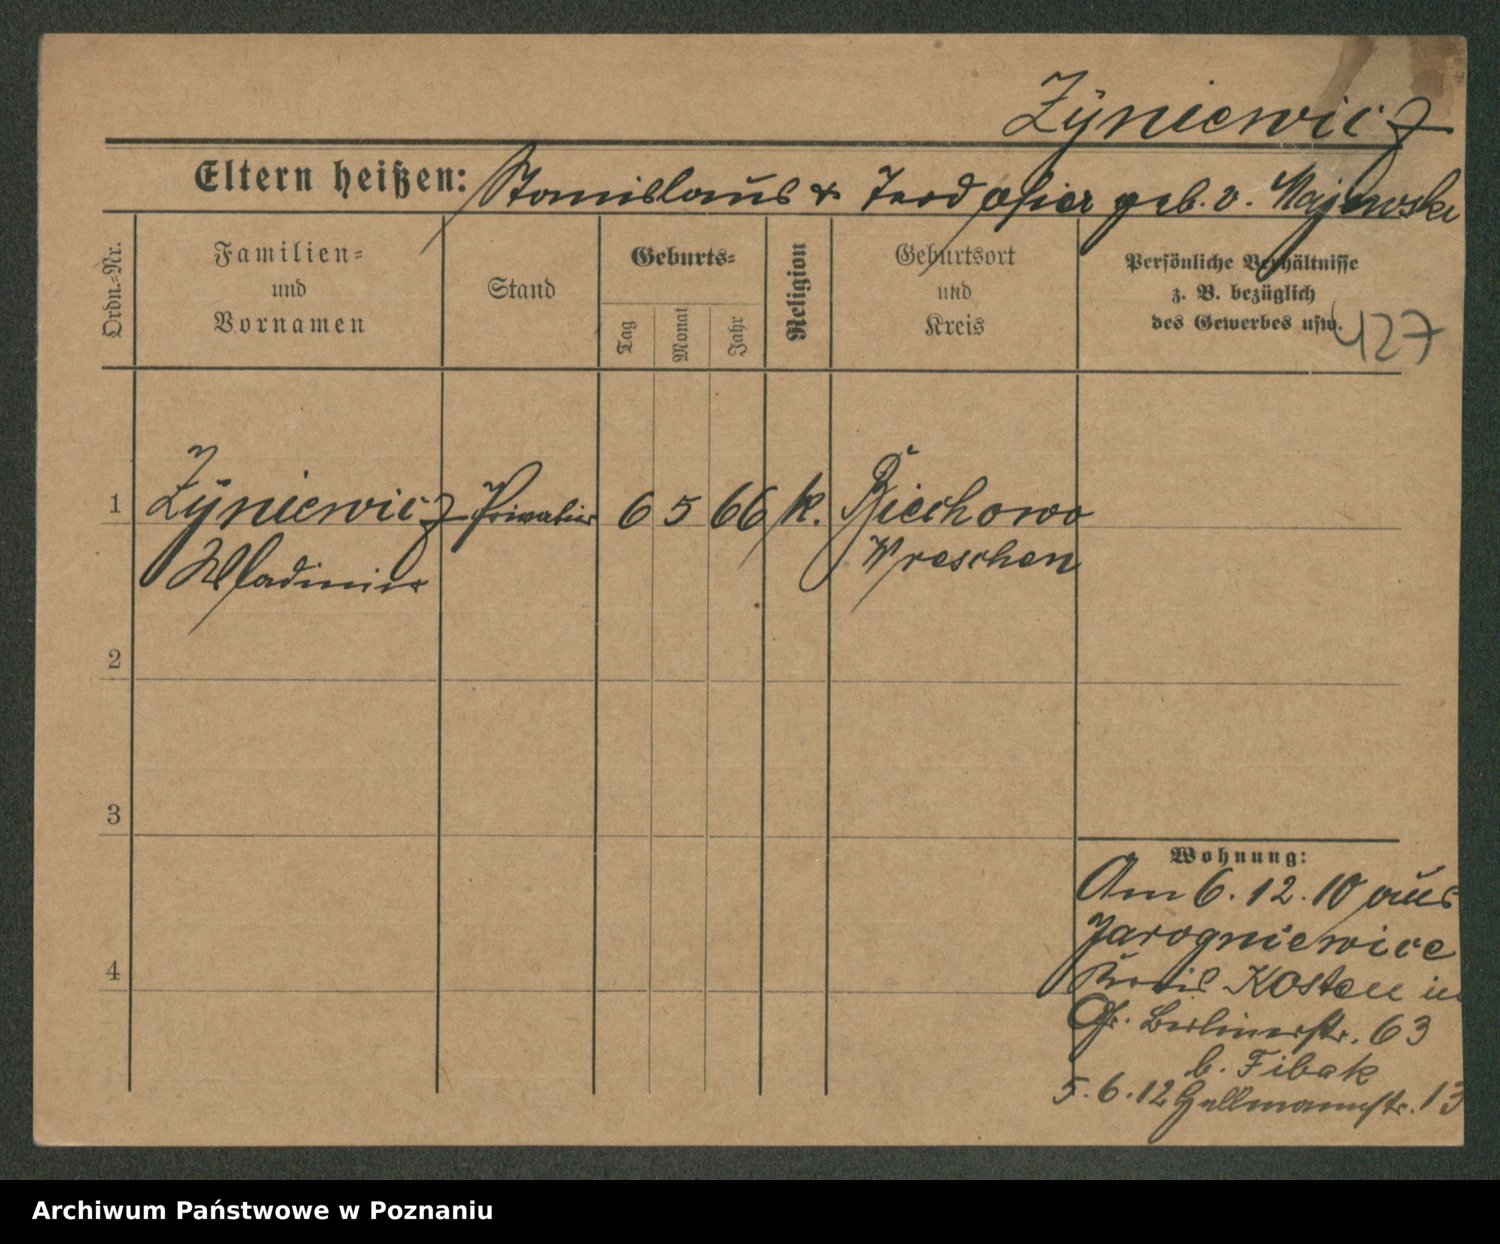 Zÿniewicz
Eltern heißen: Stanislaus & Teodosier geb. v. Majewski
Ordn.=Nr.
Familien=
und
Vornamen
Stand
Geburts=
Tag
Monat
Jahr
Religion
Geburtsort
und
Kreis
Persönliche Verhältnisse
z. B. bezüglich
des Gewerbes usw.
427
1 Zÿniewicz Privatier 6 5 66 k. Biechowo
Wladimir Wreschen
2
3
4
Wohnung:
Am 6. 12. 10 aus
Jarogniewice
Kreis Kosten in
Gr. Berlinerstr. 63
b. Fibak
5. 6. 12 Hellmannstr. 13
Archiwum Państwowe w Poznaniu